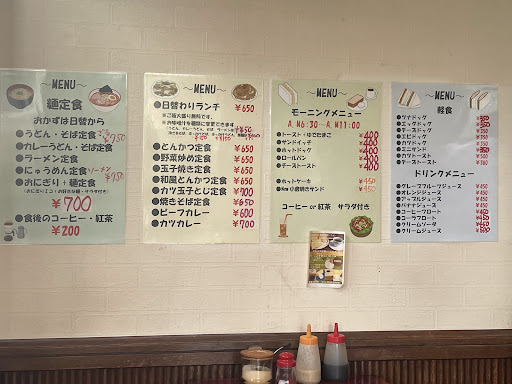 ～MENU～
麺定食
おかずは日替から
●うどん・そば定食
●カレーうどん・そば定食
●ラーメン定食
●にゅうめん定食
●おにぎり+麺定食
¥700
●食後のコーヒー・紅茶
¥200
～MENU～
●日替わりランチ ¥650
●とんかつ定食 ¥650
●野菜炒め定食 ¥650
●玉子焼き定食 ¥650
●和風とんかつ定食 ¥650
●カツ玉子とじ定食 ¥700
●焼きそば定食 ¥650
●ビーフカレー ¥600
●カツカレー ¥700
～MENU～
モーニングメニュー
A.M6:30～A.M11:00
●トースト・ゆでたまご 400
●サンドイッチ 400
●ホットドッグ 400
●ロールパン 400
●チーズトースト 400
●ホットケーキ ¥450
●New小倉焼きサンド ¥450
コーヒー or 紅茶 サラダ付き
～MENU～
軽食
●ツナドッグ
●エッグドッグ
●チーズドッグ
●エビドッグ
●カツドッグ
●ミニサンド
●カツトースト
●チーズトースト
ドリンクメニュー
●グレープフルーツジュース ¥450
●オレンジジュース ¥450
●アップルジュース ¥450
●バナナジュース ¥450
●コーヒーフロート
●コーラフロート
●クリームソーダ
●クリームジュース